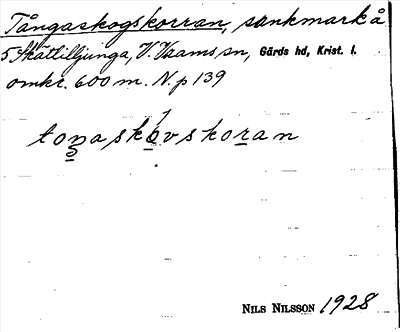 Tångaskogskorran, sankmark å
5 Skättilljunga, V. Vramssn, Gärds hd, Krist. l.
omkr. 600 m. N. p 139
toŋaskòvskoran
NILS NILSSON 1928